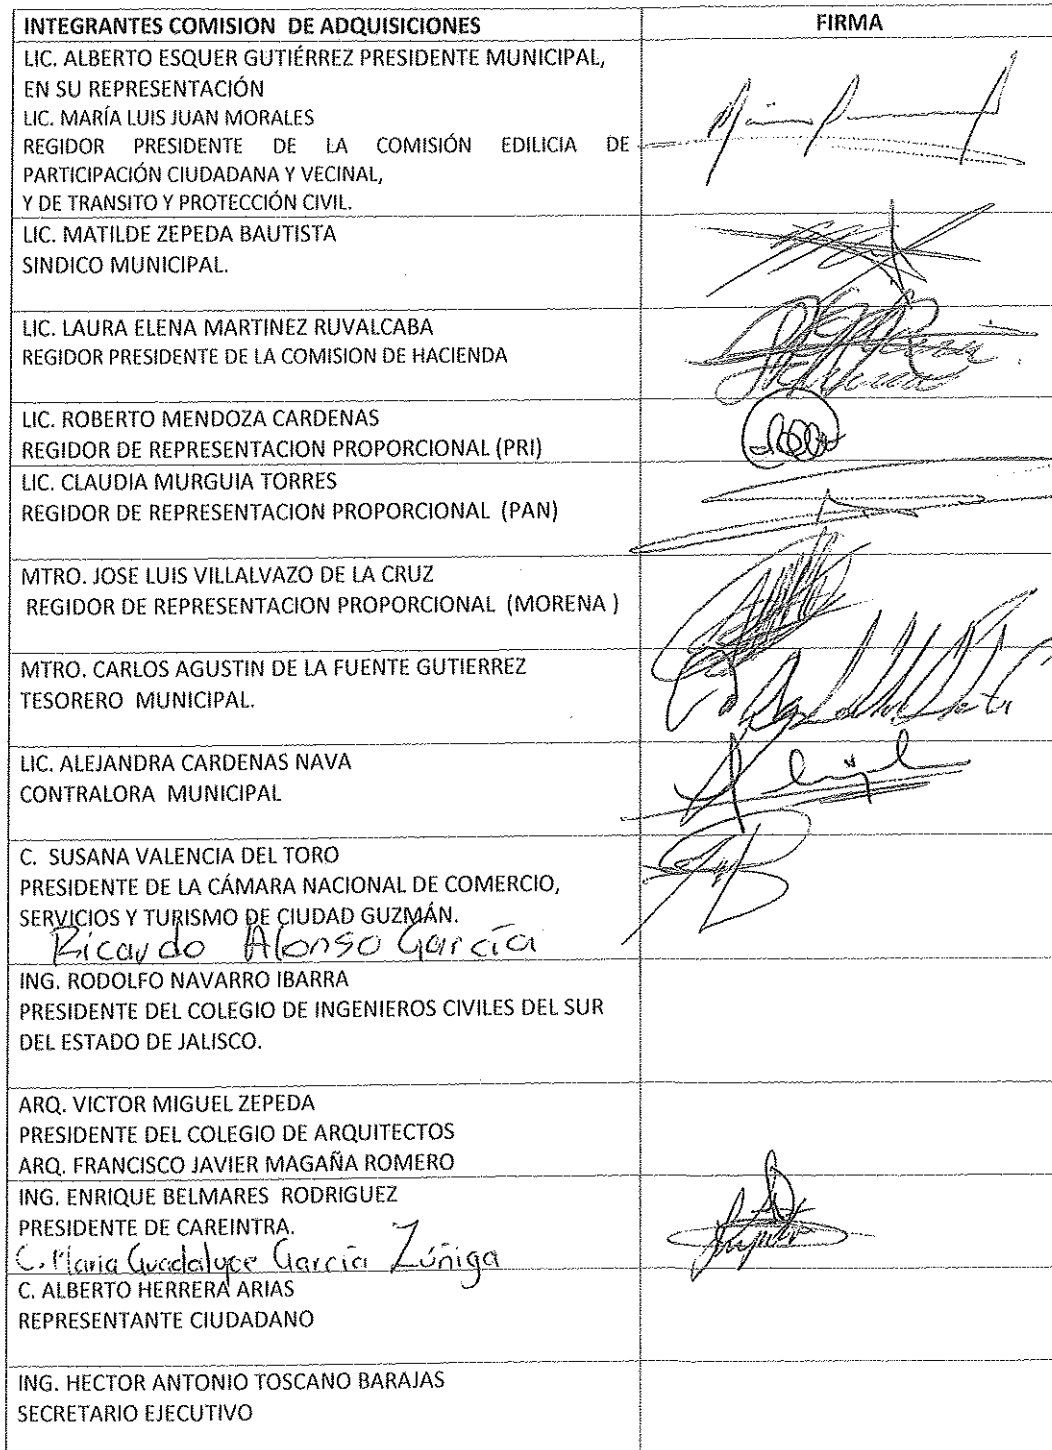 INTEGRANTES COMISION DE ADQUISICIONES
FIRMA
LIC. ALBERTO ESQUER GUTIÉRREZ PRESIDENTE MUNICIPAL,
EN SU REPRESENTACIÓN
LIC. MARÍA LUIS JUAN MORALES
REGIDOR PRESIDENTE DE LA COMISIÓN EDILICIA DE
PARTICIPACIÓN CIUDADANA Y VECINAL,
Y DE TRANSITO Y PROTECCIÓN CIVIL.
LIC. MATILDE ZEPEDA BAUTISTA
SINDICO MUNICIPAL.
LIC. LAURA ELENA MARTINEZ RUVALCABA
REGIDOR PRESIDENTE DE LA COMISION DE HACIENDA
LIC. ROBERTO MENDOZA CARDENAS
REGIDOR DE REPRESENTACION PROPORCIONAL (PRI)
LIC. CLAUDIA MURGUIA TORRES
REGIDOR DE REPRESENTACION PROPORCIONAL (PAN)
MTRO. JOSE LUIS VILLALVAZO DE LA CRUZ
REGIDOR DE REPRESENTACION PROPORCIONAL (MORENA )
MTRO. CARLOS AGUSTIN DE LA FUENTE GUTIERREZ
TESORERO MUNICIPAL.
LIC. ALEJANDRA CARDENAS NAVA
CONTRALORA MUNICIPAL
C. SUSANA VALENCIA DEL TORO
PRESIDENTE DE LA CÁMARA NACIONAL DE COMERCIO,
SERVICIOS Y TURISMO DE CIUDAD GUZMÁN.
Ricardo Alonso García
ING. RODOLFO NAVARRO IBARRA
PRESIDENTE DEL COLEGIO DE INGENIEROS CIVILES DEL SUR
DEL ESTADO DE JALISCO.
ARQ. VICTOR MIGUEL ZEPEDA
PRESIDENTE DEL COLEGIO DE ARQUITECTOS
ARQ. FRANCISCO JAVIER MAGAÑA ROMERO
ING. ENRIQUE BELMARES RODRIGUEZ
PRESIDENTE DE CAREINTRA.
C. Maria Guadalupe García Zúñiga
C. ALBERTO HERRERA ARIAS
REPRESENTANTE CIUDADANO
ING. HECTOR ANTONIO TOSCANO BARAJAS
SECRETARIO EJECUTIVO